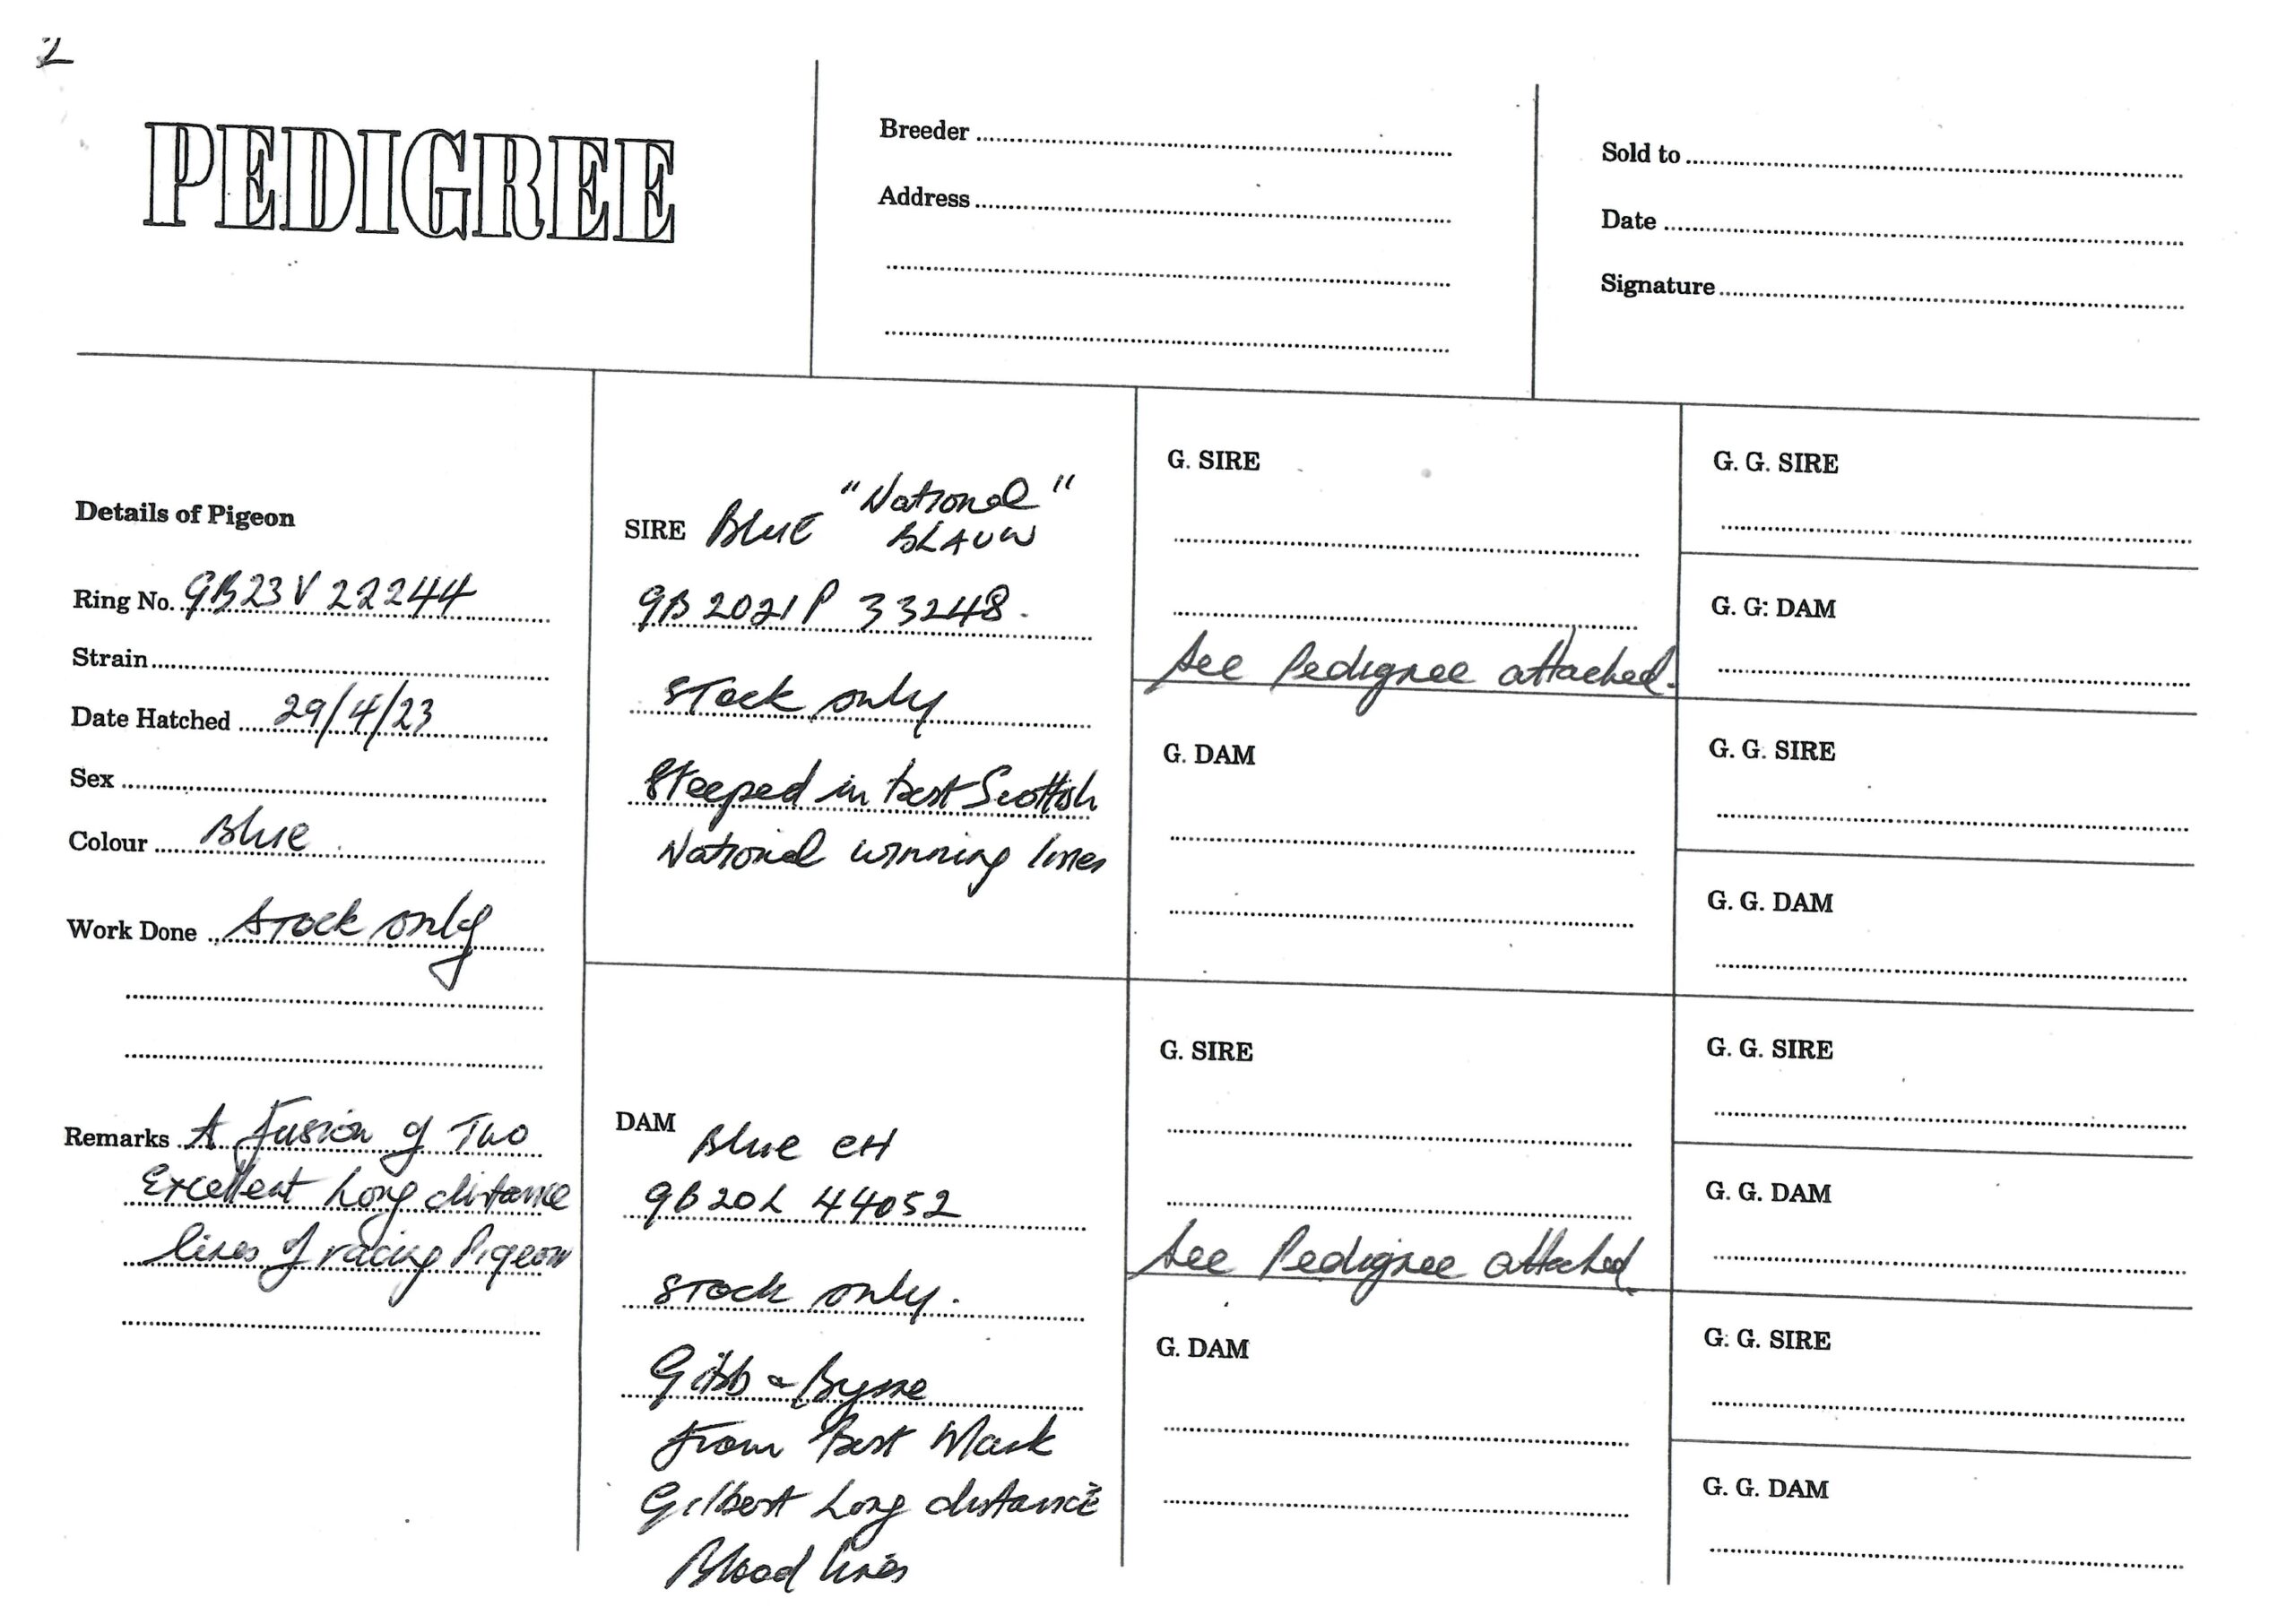 2
PEDIGREE
Breeder
Address
Sold to
Date
Signature
Details of Pigeon
Ring No. GB23 V 22244
Strain
Date Hatched 29/4/23
Sex
Colour Blue
Work Done Stock only
Remarks A fusion of Two
Excellent Long distance
lines of racing Pigeon
SIRE Blue "National"
BLAUW
GB 2021 P 33248.
Stock only
Steeped in best Scottish
National winning lines
DAM
Blue CH
GB 20 L 44052
Stock only.
Gibb & Byrne
from Best Mark
Gilbert Long distance
Blood lines
G. SIRE
See Pedigree attached.
G. DAM
G. SIRE
See Pedigree attached.
G. DAM
G. G. SIRE
G. G: DAM
G. G. SIRE
G. G. DAM
G. G. SIRE
G. G. DAM
G. G. SIRE
G. G. DAM